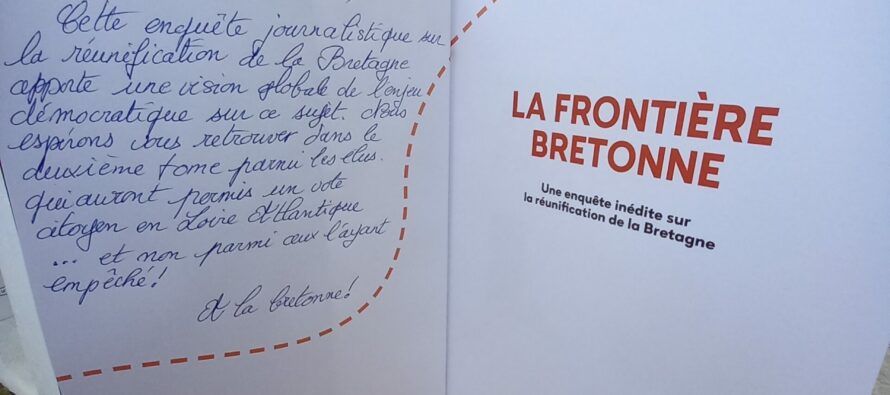 Cette enquête journalistique sur
la réunification de la Bretagne
apporte une vision globale de l'enjeu
démocratique sur ce sujet. Nous
espérons vous retrouver dans le
deuxième tome parmi les élus.
qui auront permis un vote
citoyen en Loire Atlantique
... et non parmi ceux l'ayant
empêché!
A la bretonne!
LA FRONTIÈRE
BRETONNE
Une enquête inédite sur
la réunification de la Bretagne